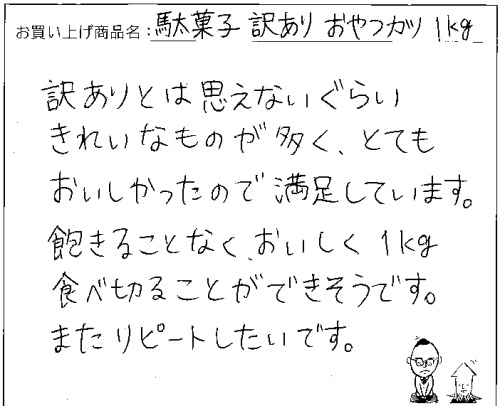 お買い上げ商品名：駄菓子 訳あり おやつカツ 1kg
訳ありとは思えないぐらい
きれいなものが多く、とても
おいしかったので満足しています。
飽きることなく、おいしく1kg
食べ切ることができそうです。
またリピートしたいです。